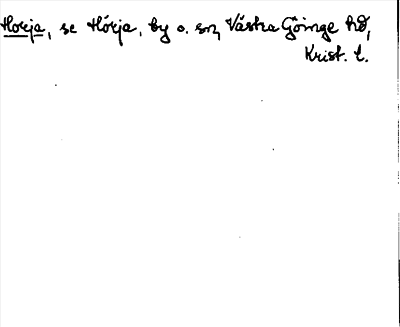 Horja, se Hörja, by o. sn, Västra Göinge hd,
Krist. l.